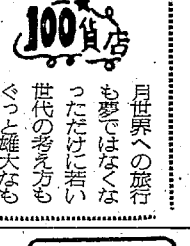 100貨店
月世界への旅行
も夢ではなくな
っただけに若い
世代の考え方も
ぐっと雄大なも